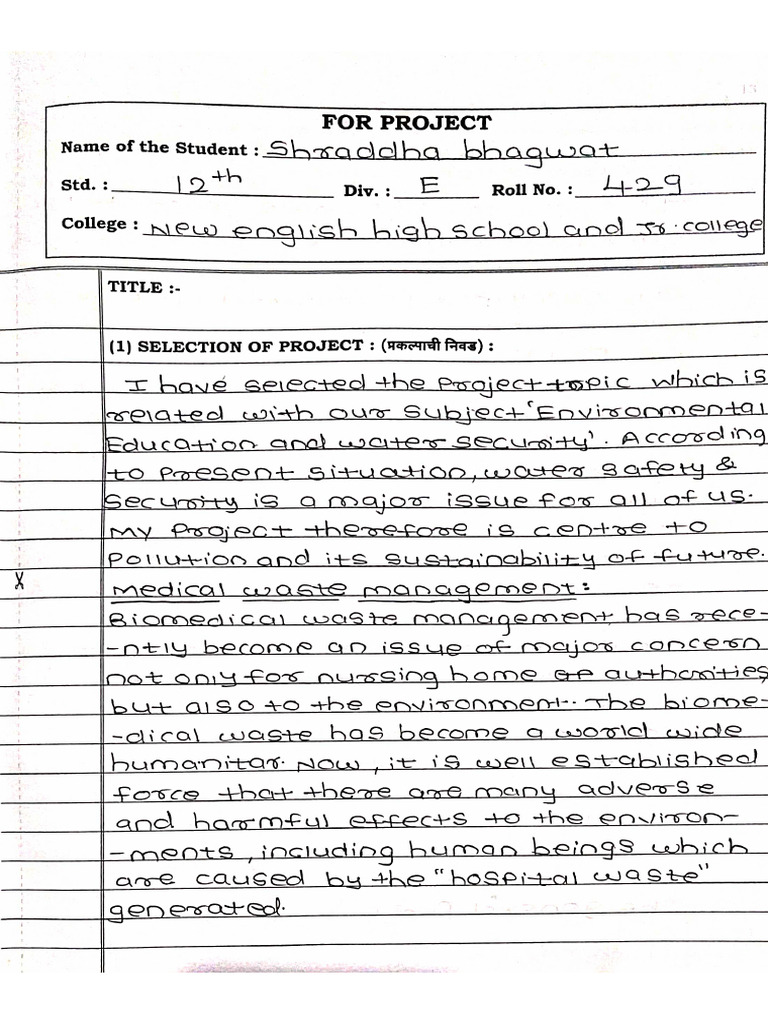 13
FOR PROJECT
Name of the Student : Shraddha bhagwat
Std. : 12th Div. : E Roll No. : 429
College : New english high school and Jr. college
TITLE :-
(1) SELECTION OF PROJECT : (प्रकल्पाची निवड) :
I have selected the project topic which is
related with our subject 'Environmental
Education and water security'. According
to present situation, water safety &
security is a major issue for all of us.
My project therefore is centre to
pollution and its sustainability of future.
X
medical waste management :
Biomedical waste management has rece-
-ntly become an issue of major concern
not only for nursing home authorities
but also to the environment. The biome-
-dical waste has become a world wide
humanitar. Now, it is well established
force that there are many adverse
and harmful effects to the environ-
-ments, including human beings which
are caused by the "hospital waste"
generated.